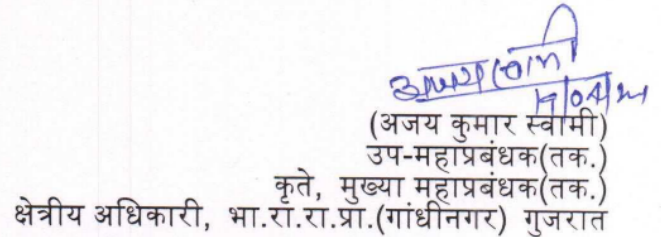 (अजय कुमार स्वामी)
उप-महाप्रबंधक(तक.)
कृते, मुख्या महाप्रबंधक(तक.)
क्षेत्रीय अधिकारी, भा.रा.रा.प्रा.(गांधीनगर) गुजरात